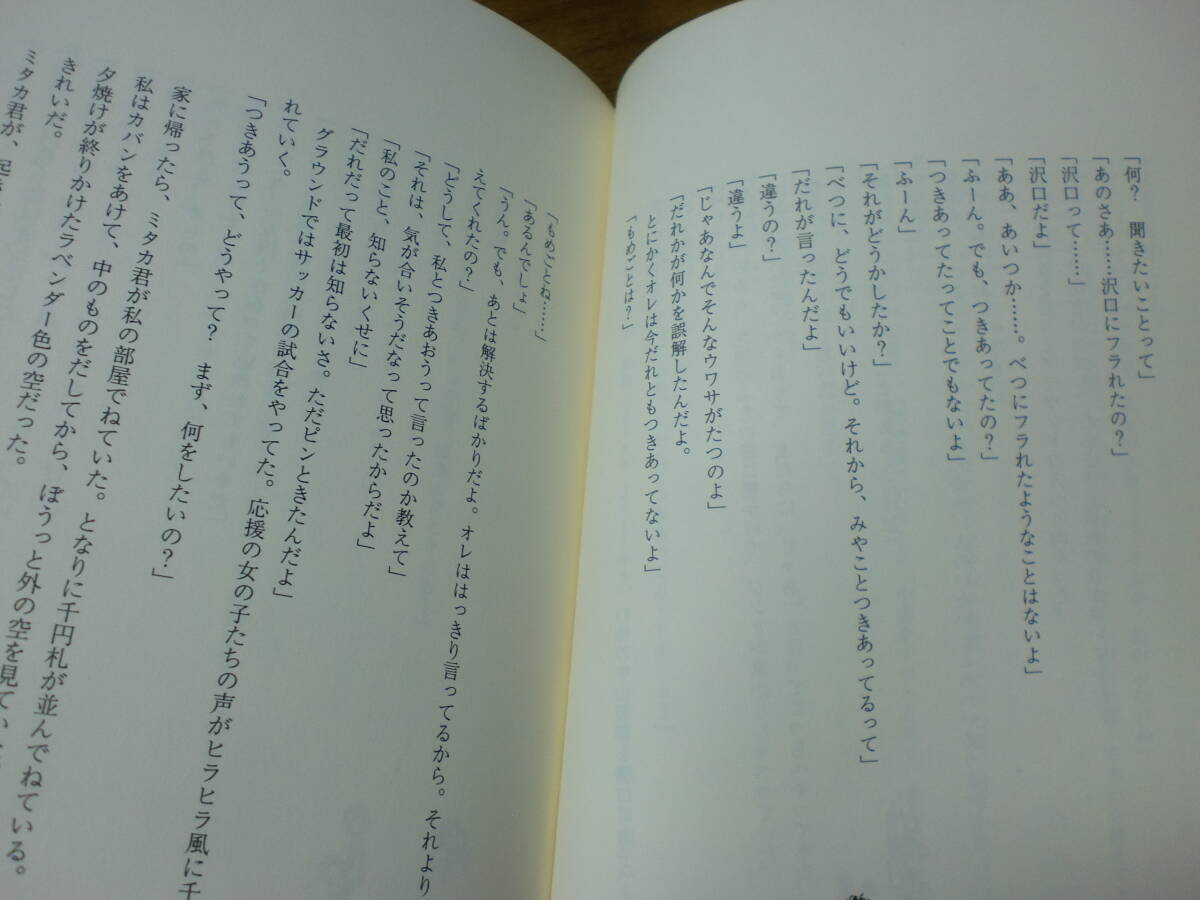 「何？　聞きたいことって」
「あのさあ……沢口にフラれたの？」
「沢口って……」
「沢口だよ」
「ああ、あいつか……。べつにフラれたようなことはないよ」
「ふーん。でも、つきあってたの？」
「つきあってたってことでもないよ」
「ふーん」
「それがどうかしたか？」
「べつに、どうでもいいけど。それから、みやことつきあってるって」
「だれが言ったんだよ」
「違うの？」
「違うよ」
「じゃあなんでそんなウワサがたつのよ」
「だれかが何かを誤解したんだよ。
とにかくオレは今だれともつきあってないよ」
「もめごとは？」
「もめごとね……」
「あるんでしょ」
「うん。でも、あとは解決するばかりだよ。オレははっきり言ってるから。それより
えてくれたの？」
「どうして、私とつきあおうって言ったのか教えて」
「それは、気が合いそうだなって思ったからだよ」
「私のこと、知らないくせに」
「だれだって最初は知らないさ。ただピンときたんだよ」
グラウンドではサッカーの試合をやってた。応援の女の子たちの声がヒラヒラ風に千
れていく。
「つきあうって、どうやって？　まず、何をしたいの？」
家に帰ったら、ミタカ君が私の部屋でねていた。となりに千円札が並んでねている。
私はカバンをあけて、中のものをだしてから、ぼうっと外の空を見てい
夕焼けが終りかけたラベンダー色の空だった。
きれいだ。
ミタカ君が、起き